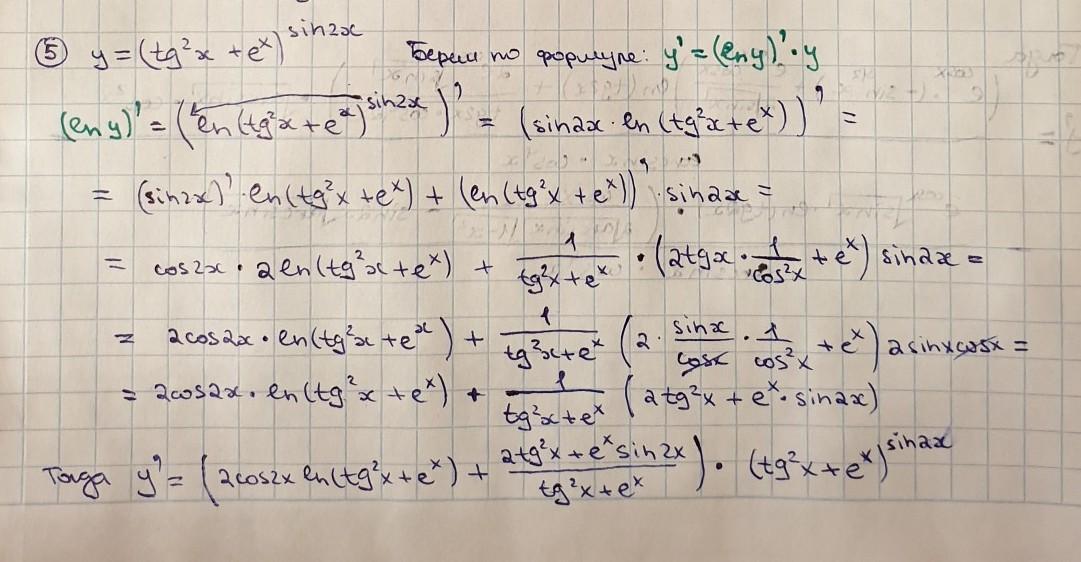 ⑤ y = (tg²x + eˣ)^(sin2x) Берем по формуле: y' = (ln y)' · y
(ln y)' = (ln(tg²x + eˣ)^(sin2x))' = (sin2x · ln(tg²x + eˣ))' =
= (sin2x)' · ln(tg²x + eˣ) + (ln(tg²x + eˣ))' · sin2x =
= cos2x · 2ln(tg²x + eˣ) + 1/(tg²x + eˣ) · (2tgx · 1/cos²x + eˣ) sin2x =
= 2cos2x · ln(tg²x + eˣ) + 1/(tg²x + eˣ) (2 · sinx/cosx · 1/cos²x + eˣ) 2sinxcosx =
= 2cos2x · ln(tg²x + eˣ) + 1/(tg²x + eˣ) (2tg²x + eˣ · sin2x)
Тогда y' = (2cos2x ln(tg²x + eˣ) + (2tg²x + eˣ sin2x)/(tg²x + eˣ)) · (tg²x + eˣ)^(sin2x)